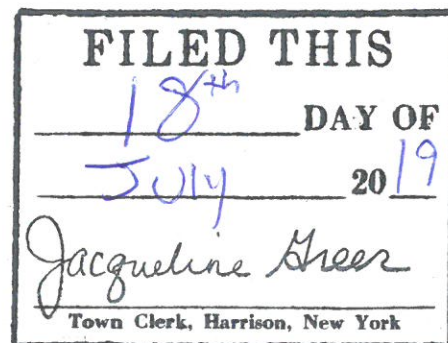 FILED THIS
18th DAY OF
July 2019
Jacqueline Greer
Town Clerk, Harrison, New York